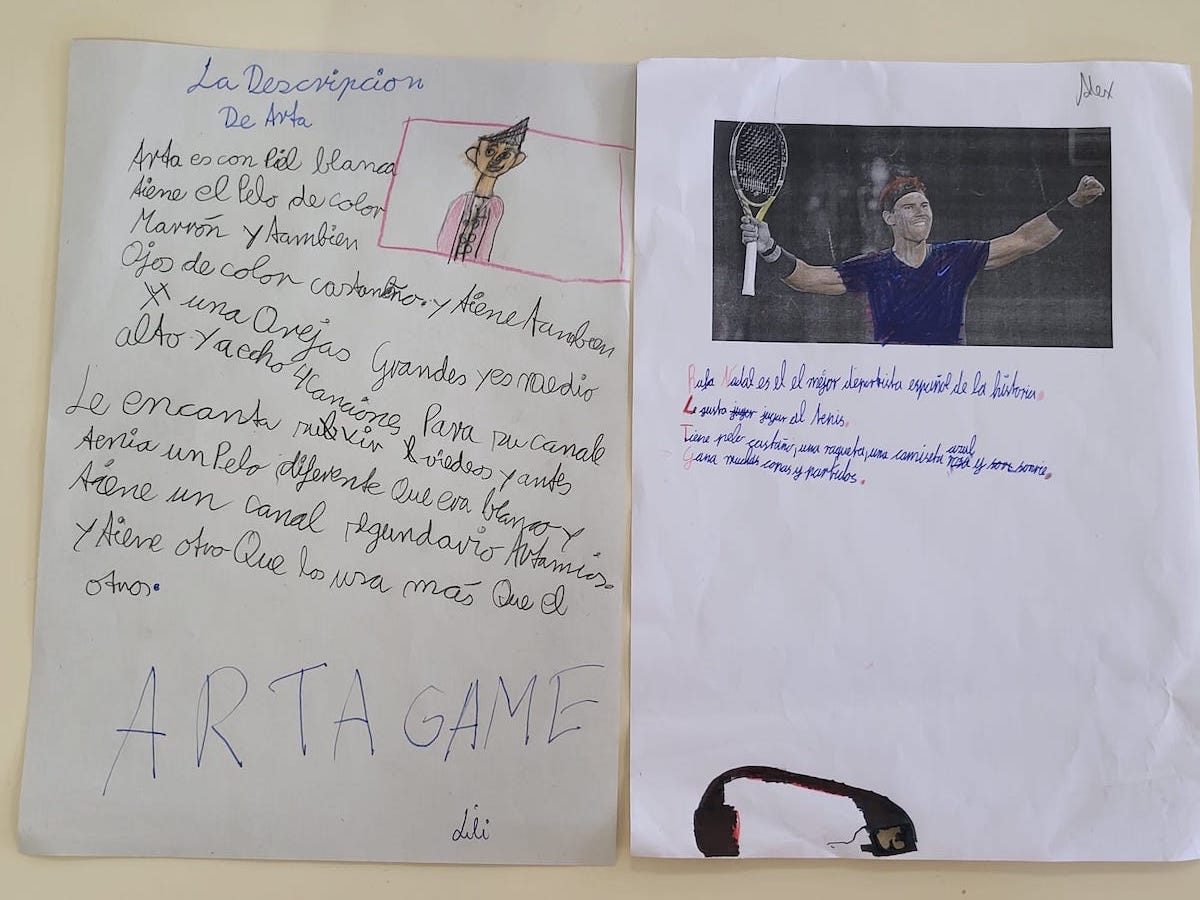 La Descripcion
De Arta
Arta es con Piel blanca
tiene el Pelo de color
Marrón y tambien
Ojos de color castaño. y tiene tambien
una Orejas Grandes y es medio
alto y a echo 4 Canciones Para su canale
Le encanta subir viedeos y antes
tenia un Pelo diferente Que era blanco y
tiene un canal segundario Artamios.
y tiene otro Que los usa más Que el
otros.
ARTA GAME
Lili
Alex
Rafa Nadal es el el mejor deportista español de la historia.
Le gusta jugar al tenis.
Tiene pelo castaño, una raqueta, una camiseta azul y sonrie.
Gana muchas copas y partidos.